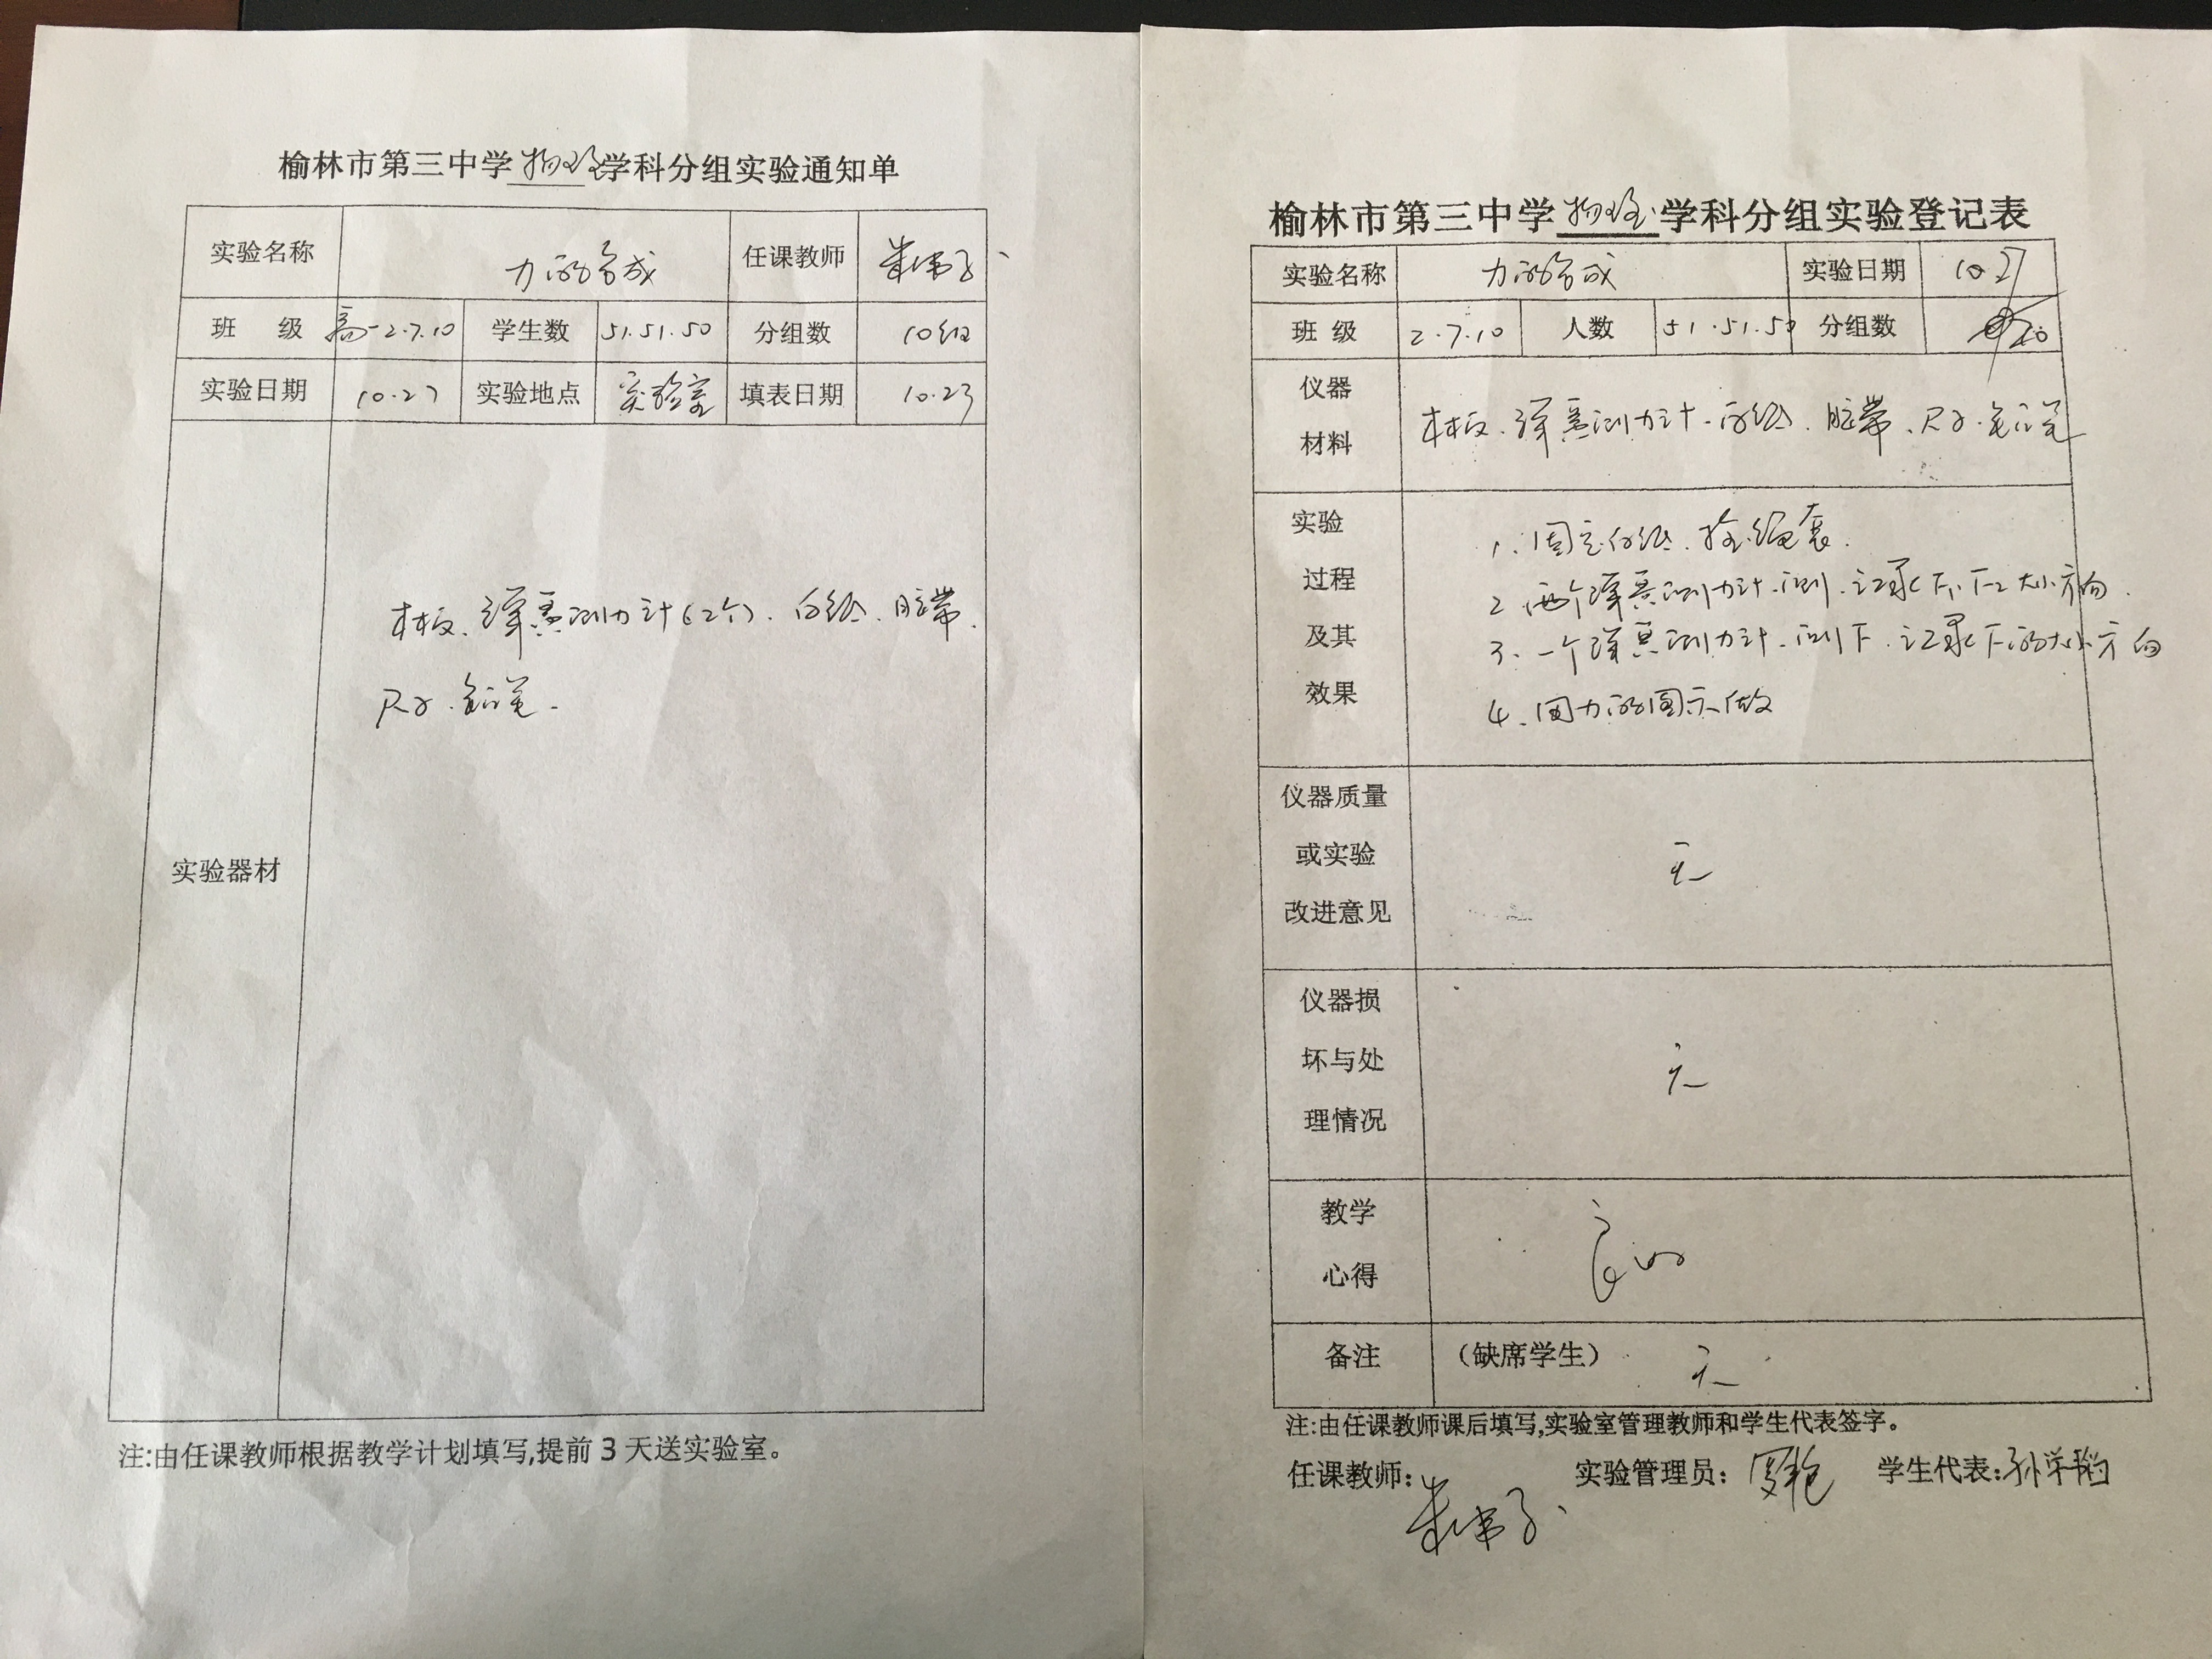 榆林市第三中学物理学科分组实验通知单
实验名称 力的合成 任课教师
班 级 高一2.7.10 学生数 51.51.50 分组数 10组
实验日期 10.27 实验地点 实验室 填表日期 10.23
实验器材
木板、弹簧测力计(2个)、白纸、胶带、
尺子、铅笔.
注:由任课教师根据教学计划填写,提前3天送实验室。
榆林市第三中学物理学科分组实验登记表
实验名称 力的合成 实验日期 10.27
班 级 2.7.10 人数 51.51.50 分组数
仪器
材料
木板、弹簧测力计、白纸、胶带、尺子、铅笔
实验
过程
及其
效果
1、固定白纸、拴绳套.
2、两个弹簧测力计、测、记录F1、F2大小方向.
3、一个弹簧测力计、测F、记录F的大小方向
4、用力的图示做
仪器质量
或实验
改进意见
无
仪器损
坏与处
理情况
无
教学
心得
良好
备注 (缺席学生) 无
注:由任课教师课后填写,实验室管理教师和学生代表签字。
任课教师: 实验管理员: 学生代表: